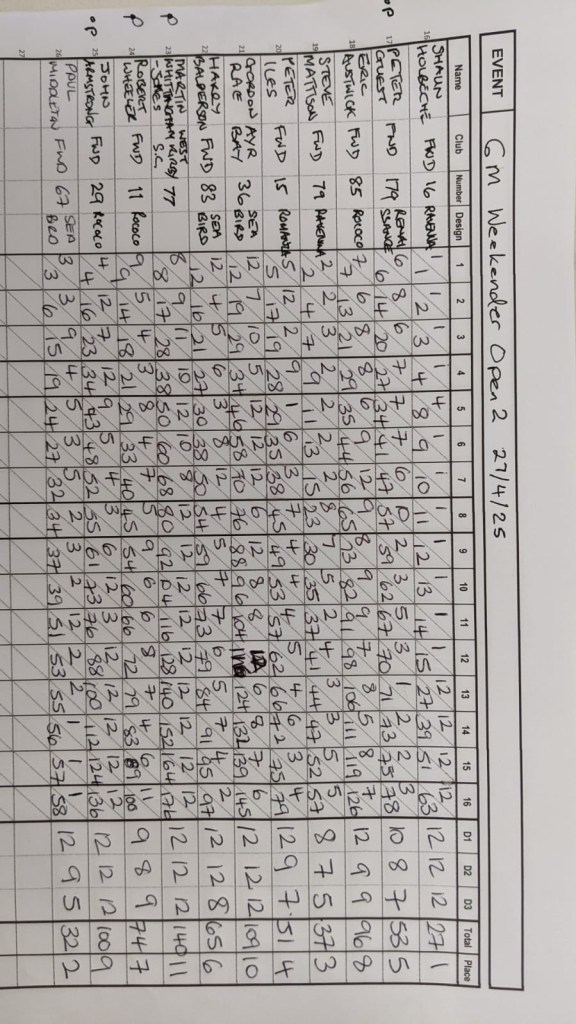 EVENT 6M Weekender Open 2 27/4/25
Name Club Number Design 1 2 3 4 5 6 7 8 9 10 11 12 13 14 15 16 D1 D2 D3 Total Place
16 SHAUN 1 1 1 1 4 1 1 1 1 1 1 1 12 12 12 12
HOLBECHE FWD 16 RAVENNA 1 2 3 4 8 9 10 11 12 13 14 15 27 39 51 63 12 12 12 27 1
OP 17 PETER RENAI 6 8 6 7 7 7 6 10 2 3 5 3 1 2 2 3
GUEST FWD 179 SSANCE 6 14 20 27 34 41 47 57 59 62 67 70 71 73 75 78 10 8 7 53 5
18 ERIC 7 6 8 8 6 9 12 9 8 9 9 7 8 5 8 7
AUSTWICK FWD 85 ROCOCO 7 13 21 29 35 44 56 65 73 82 91 98 106 111 119 126 12 9 9 96 8
19 STEVE 2 2 3 2 2 2 2 8 7 5 2 4 3 3 5 5
MATTISON FWD 79 RAVENNA 2 4 7 9 11 13 15 23 30 35 37 41 44 47 52 57 8 7 5 37 3
20 PETER 5 12 2 9 1 6 3 7 4 4 4 5 4 6 3 4
ILES FWD 15 ROMANZA 5 17 19 28 29 35 38 45 49 53 57 62 66 72 75 79 12 9 7 51 4
21 GORDON AYR SEA 12 7 10 5 12 12 12 6 12 8 8 6 8 7 6
RAE BAY 36 BIRD 12 19 29 34 46 58 70 76 88 96 104 124 132 139 145 12 12 12 109 10
22 HARRY SEA 12 4 5 6 3 8 12 4 5 7 7 6 5 7 4 2
BALDERSON FWD 83 BIRD 12 16 21 27 30 38 50 54 59 66 73 79 84 91 95 97 12 12 8 65 6
P 23 MARTIN WEST 8 9 11 10 12 10 8 12 12 12 12 12 12 12 12 12
WHITTINGHAM KIRBY 77 8 17 28 38 50 60 68 80 92 104 116 128 140 152 164 176 12 12 12 140 11
-JONES S.C
P 24 ROBERT 9 5 4 3 8 4 7 5 9 6 6 8 7 4 6 11
WHEELER FWD 11 ROCOCO 9 14 18 21 29 33 40 45 54 60 66 72 79 83 89 100 9 8 9 74 7
OP 25 JOHN 4 12 7 12 9 5 4 3 6 12 3 12 12 12 12 12
ARMSTRONG FWD 29 ROCOCO 4 16 23 34 43 48 52 55 61 73 76 88 100 112 124 136 12 12 12 100 9
26 PAUL SEA 3 3 9 4 5 3 5 2 3 2 12 2 2 1 1 1
MIDDLETIN FWD 67 BIRD 3 6 15 19 24 27 32 34 37 39 51 53 55 56 57 58 12 9 5 32 2
27